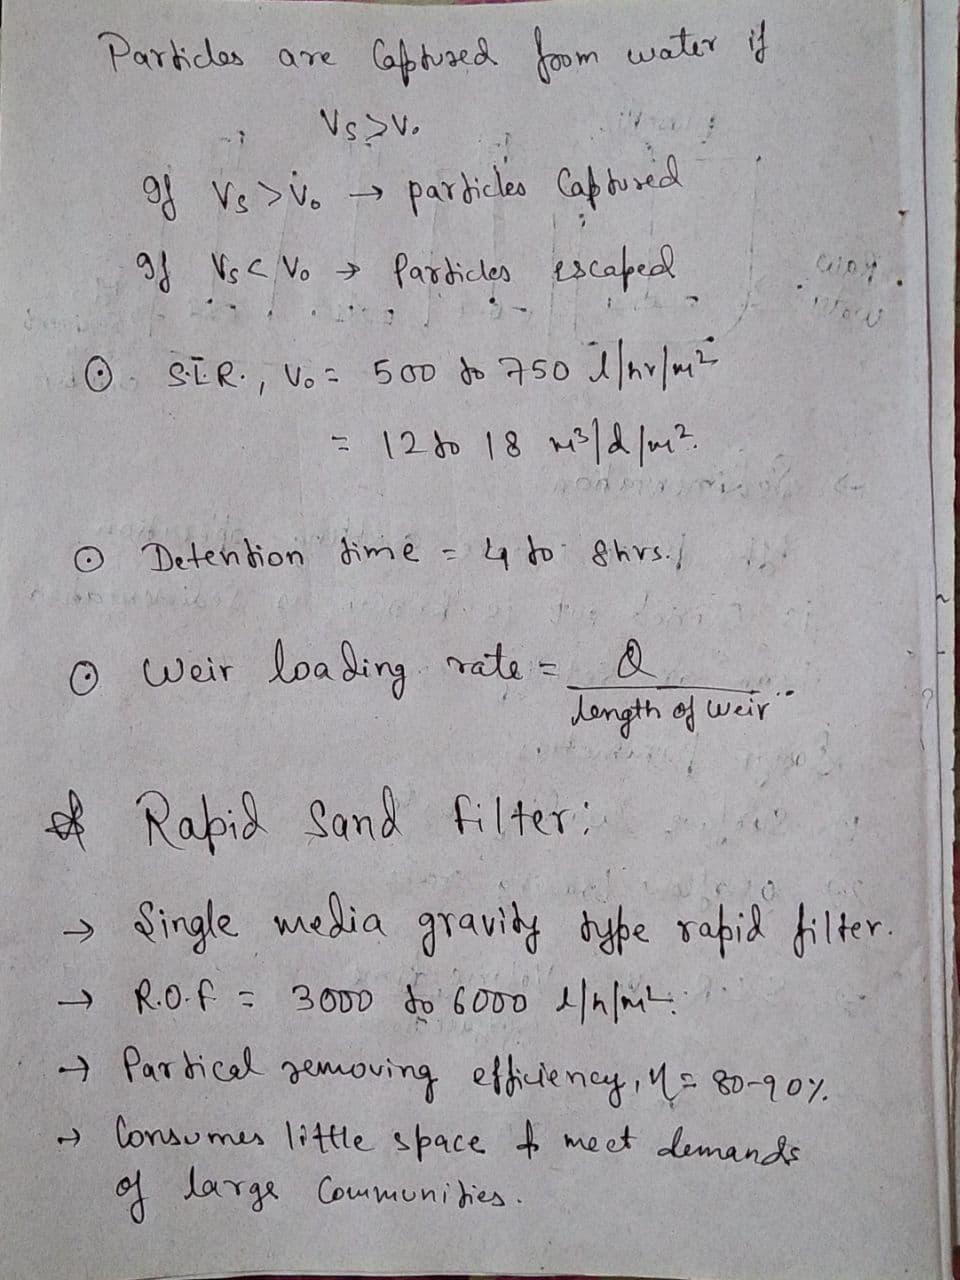 Particles are Captured from water if
Vs>V₀
If Vs > V₀ → particles Captured
If Vs < V₀ → Particles escaped
⊙ S.L.R., V₀ = 500 to 750 l/hr/m²
= 12 to 18 m³/d/m².
⊙ Detention time = 4 to 8hrs.
⊙ Weir loading rate = Q
length of weir
* Rapid Sand filter:
→ Single media gravity type rapid filter.
→ R.O.F = 3000 to 6000 l/h/m².
→ Partical removing efficiency, η = 80-90%.
→ Consumes little space & meet demands
of large Communities.